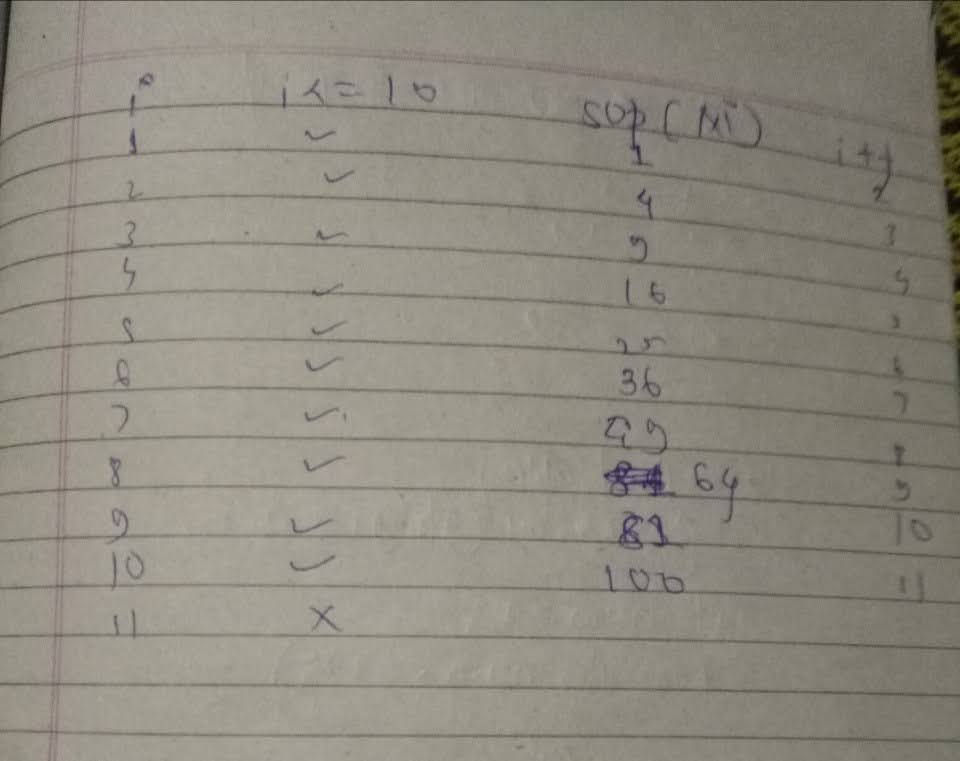 i i<=10 SOP(i*i) i++
1 ✓ 1 2
2 ✓ 4 3
3 ✓ 9 4
4 ✓ 16 5
5 ✓ 25 6
6 ✓ 36 7
7 ✓ 49 8
8 ✓ 64 9
9 ✓ 81 10
10 ✓ 100 11
11 ×